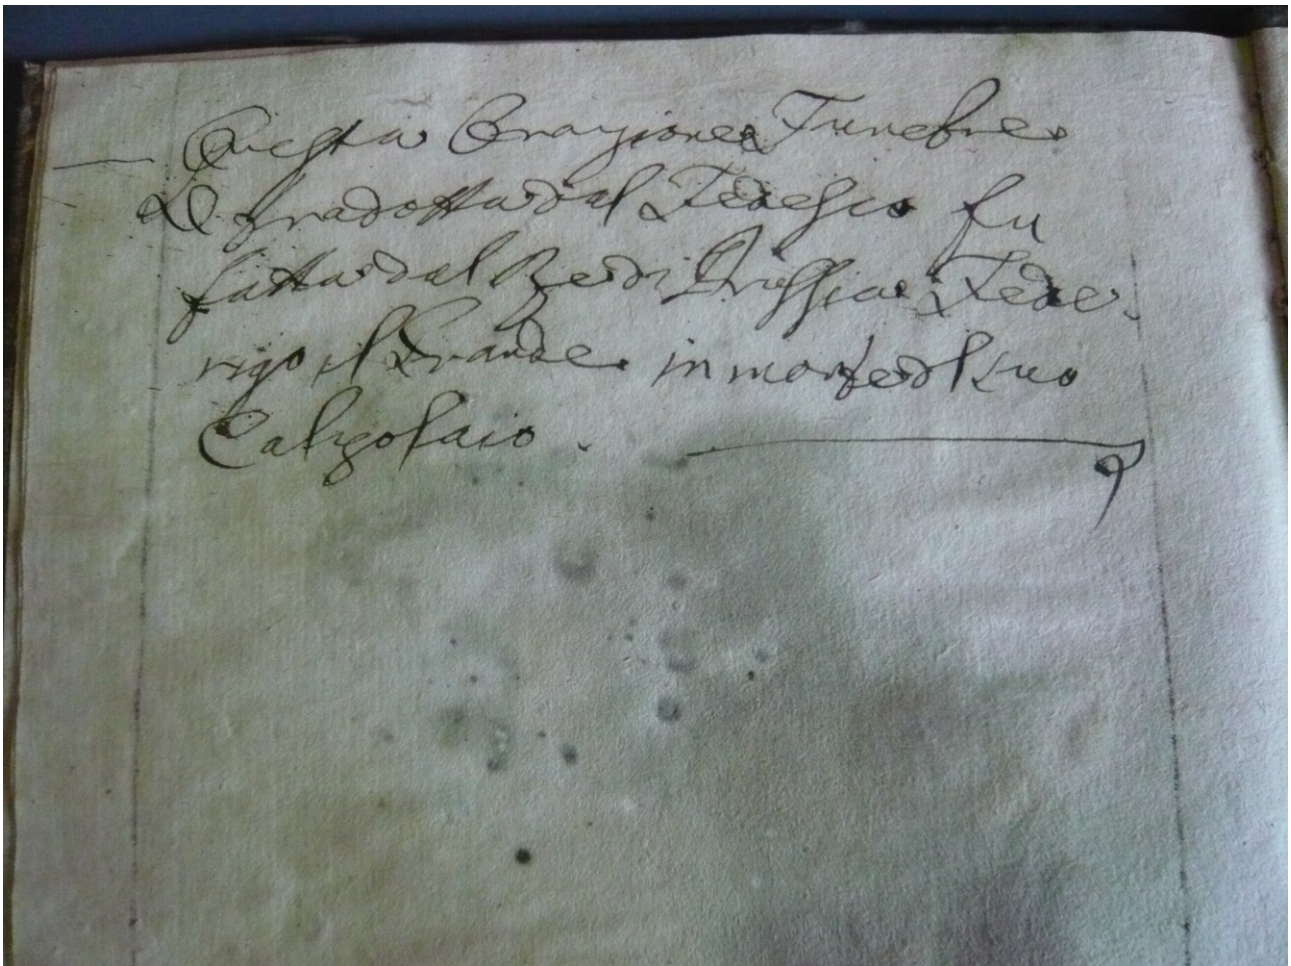 Questa Orazione Funebre
È tradotta dal Tedescho fu
fatta dal Re di Prussia Fede-
rigo il Grande in morte del suo
Calzolaio.